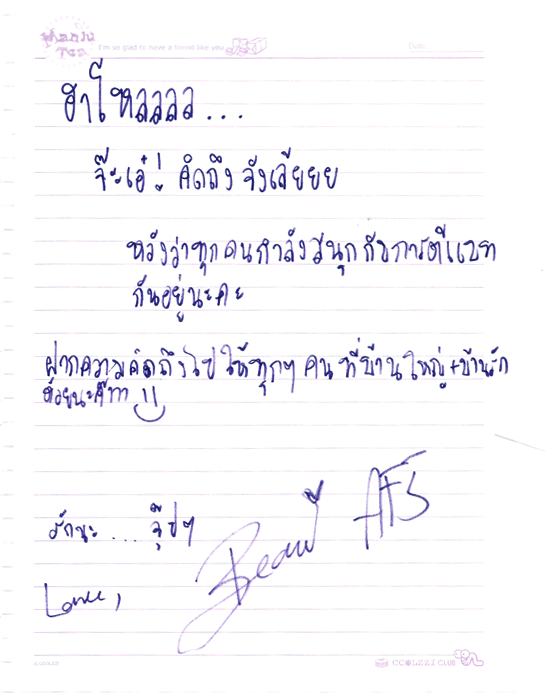 Manju Tea
I'm so glad to have a friend like you
Date.
ฮาโหลลลล...
จ๊ะเอ๋! คิดถึงจังเลยยย
หวังว่าทุกคนกำลังสนุกกับการตีแบท
กันอยู่นะคะ
ฝากความคิดถึงไปให้ทุกๆ คนที่บ้านใหญ่+บ้านรัก
ด้วยนะค๊าา
รักนะ .... จุ๊ปๆ
AFS
Love,
CCOLZZI CLUB